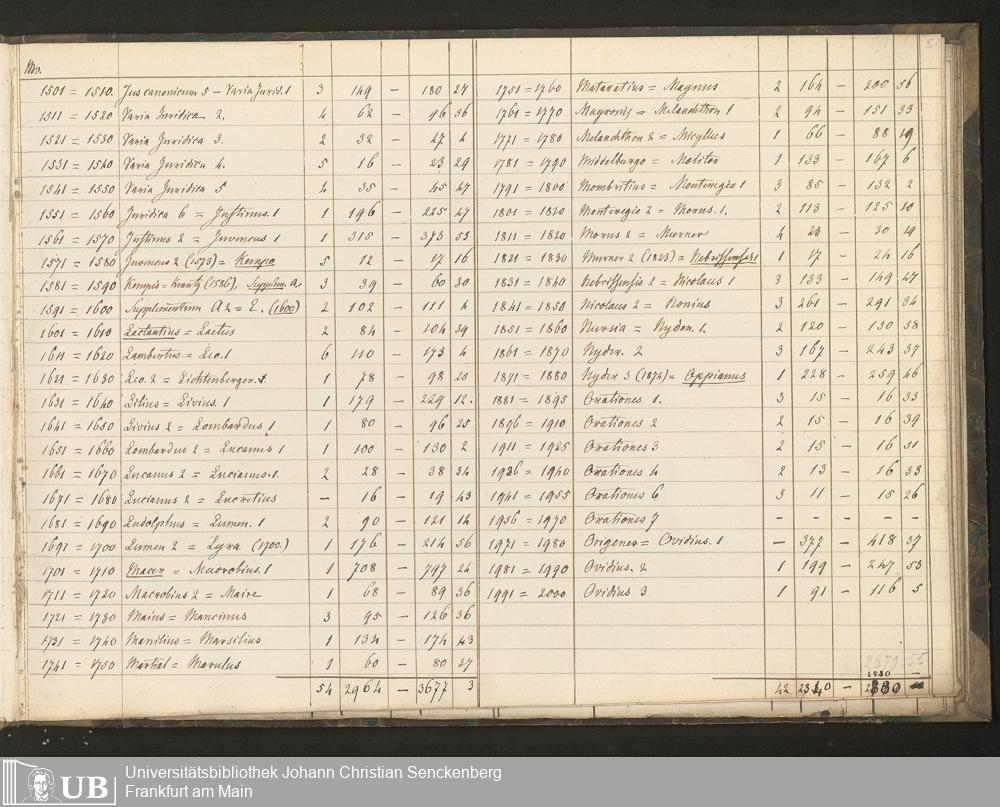 Nro.
1501 = 1510. Jus canonicum 5 – Varia Jurid. 1 3 149 – 180 27
1511 = 1520 Varia Juridica 2. 4 62 – 96 36
1521 = 1530 Varia Juridica 3. 2 32 – 47 4
1531 = 1540 Varia Juridica 4. 5 16 – 23 29
1541 = 1550 Varia Juridica 5 4 35 – 45 47
1551 = 1560 Juridica 6 = Justinus. 1 1 196 – 225 47
1561 = 1570 Justinus 2 = Juvencus 1 1 315 – 373 53
1571 = 1580 Juvencus 2 (1573) = Kempe 5 12 – 17 16
1581 = 1590 Kempis = Krantz (1586), Supplem. A. 1 3 39 – 60 30
1591 = 1600 Supplementum A 2 = E. (1600) 2 102 – 111 4
1601 = 1610 Lactantius = Laetus 2 84 – 104 39
1611 = 1620 Lambertus = Leo. 1 6 110 – 173 4
1621 = 1630 Leo. 2 = Lichtenberger. 1 1 78 – 98 25
1631 = 1640 Lilius = Livius. 1 1 179 – 229 12.
1641 = 1650 Livius 2 = Lombardus 1 1 80 – 96 25
1651 = 1660 Lombardus 2 = Lucanus 1 1 100 – 130 2
1661 = 1670 Lucanus 2 = Lucianus. 1. 2 28 – 38 34
1671 = 1680 Lucianus 2 = Lucretius – 16 – 19 43
1681 = 1690 Ludolphus = Lumen. 1 2 90 – 121 14
1691 = 1700 Lumen 2 = Lyra (1700.) 1 176 – 214 56
1701 = 1710 Macer = Macrobius. 1 1 708 – 797 24
1711 = 1720 Macrobius 2 = Maire 1 68 – 89 36
1721 = 1730 Maius = Mancinus 3 95 – 126 36
1731 = 1740 Manilius = Marsilius 1 134 – 174 43
1741 = 1750 Martial = Marulus 1 60 – 80 27
54 2964 – 3677 3
5
1751 = 1760 Mataratius = Maynus 2 164 – 200 56
1761 = 1770 Mayronis = Melanchthon 1 2 94 – 151 33
1771 = 1780 Melanchthon 2 = Micyllus 1 66 – 88 19
1781 = 1790 Middelburgo = Molitor 1 133 – 167 6
1791 = 1800 Mombritius = Monteregio 1 3 85 – 132 2
1801 = 1810 Monteregio 2 = Morus. 1. 2 113 – 125 10
1811 = 1820 Morus 2 = Murner 4 23 – 30 19
1821 = 1830 Murner 2 (1823) = Nebrissensis 1 1 17 – 24 16
1831 = 1840 Nebrissensis 2 = Nicolaus 1 3 133 – 149 27
1841 = 1850 Nicolaus 2 = Nonius 3 261 – 291 34
1851 = 1860 Nursia = Nyder. 1. 2 120 – 130 58
1861 = 1870 Nyder. 2 3 167 – 243 37
1871 = 1880 Nyder 3 (1874) = Oppianus 1 228 – 259 46
1881 = 1895 Orationes 1. 3 15 – 16 33
1896 = 1910 Orationes 2 2 15 – 16 39
1911 = 1925 Orationes 3 2 15 – 16 31
1926 = 1940 Orationes 4 2 13 – 16 33
1941 = 1955 Orationes 6 3 11 – 15 26
1956 = 1970 Orationes 7 – – – – –
1971 = 1980 Origenes = Ovidius. 1 – 377 – 418 37
1981 = 1990 Ovidius. 2 1 199 – 247 53
1991 = 2000 Ovidius 3 1 91 – 116 5
2879 55
2830 –
42 2340 –
UB Universitätsbibliothek Johann Christian Senckenberg
Frankfurt am Main